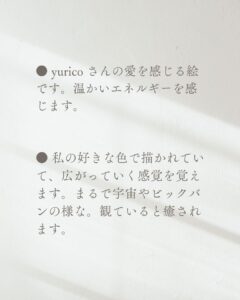 ● yurico さんの愛を感じる絵
です。温かいエネルギーを感
じます。
● 私の好きな色で描かれてい
て、広がっていく感覚を覚え
ます。まるで宇宙やビックバ
ンの様な。観ていると癒されま
す。